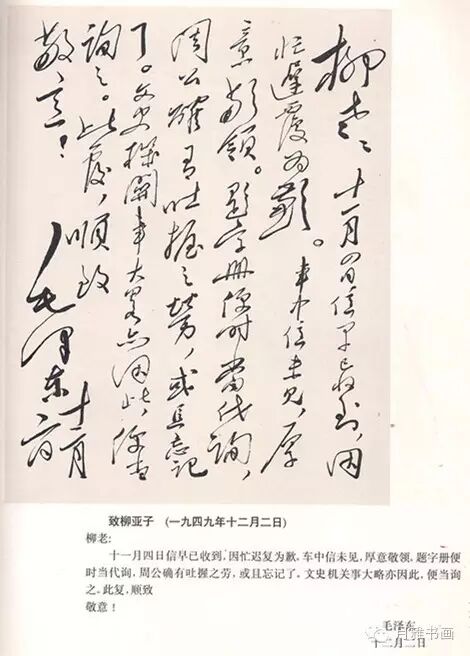 柳老：十一月四日信早已收到，因
忙遲覆为歉。車中信未見，厚
意敬領。題字冊便时当代詢，
周公確有吐握之勞，或且忘記
了。文史機關事大畧亦因此，便当
詢之。此覆，順致
敬意！
毛澤東
十二月二日
致柳亚子 (一九四九年十二月二日)
柳老:
十一月四日信早已收到，因忙迟复为歉，车中信未见，厚意敬领，题字册便
时当代询，周公确有吐握之劳，或且忘记了，文史机关事大略亦因此，便当询
之。此复，顺致
敬意！
毛泽东
十二月二日
月雅书画